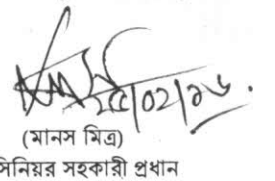 ২৫/০২/২৬.
(মানস মিত্র)
সিনিয়র সহকারী প্রধান